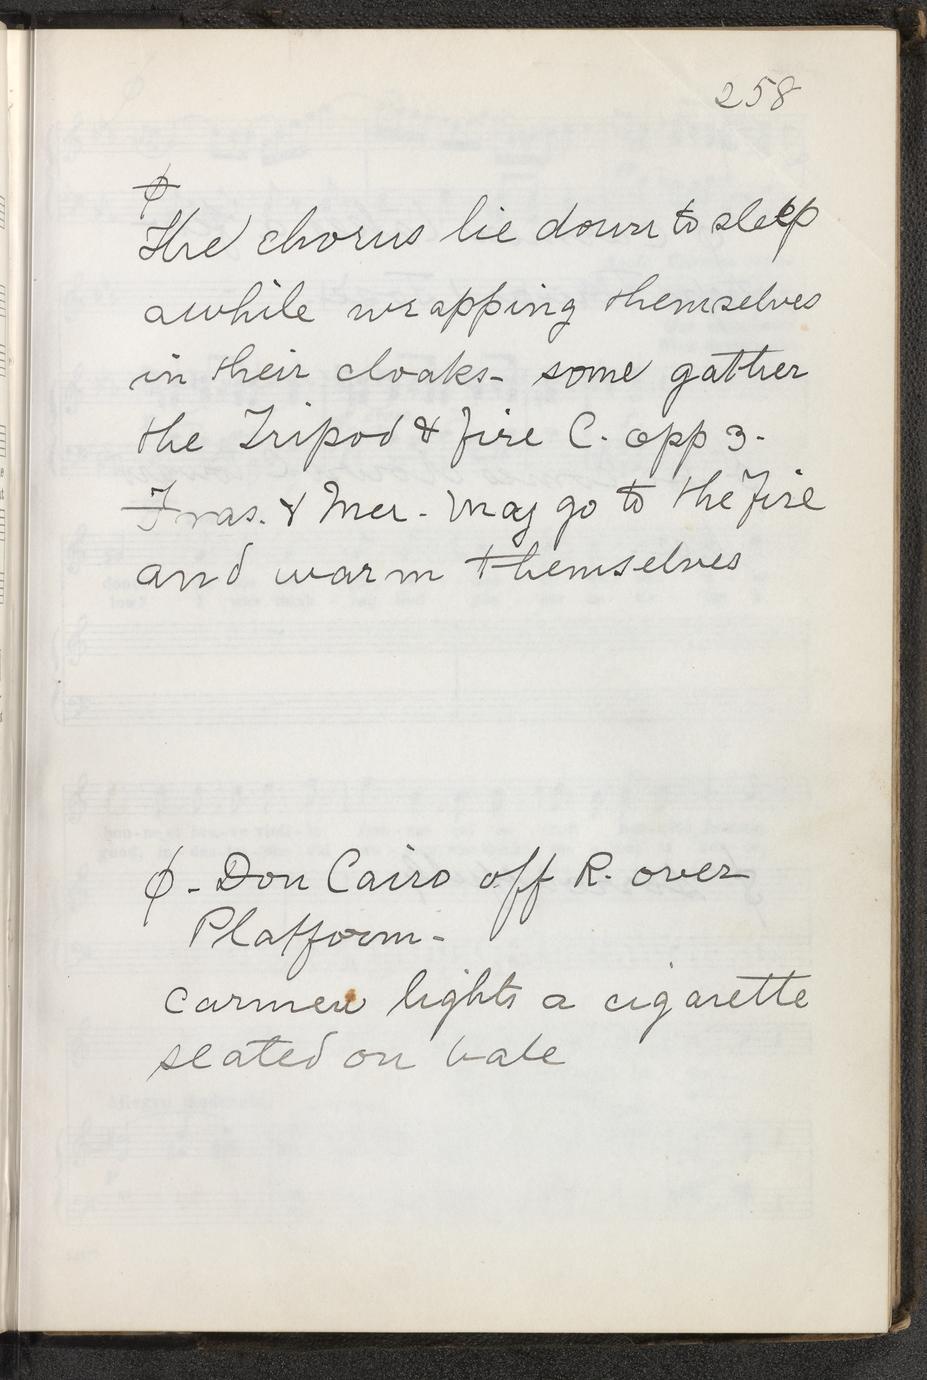 258
ϕ
The chorus lie down to sleep
awhile wrapping themselves
in their cloaks- some gather
the Tripod & fire C. opp 3.
Fras. & Mer. may go to the fire
and warm themselves
ϕ - Don Cairo off R. over
Platform -
Carmen lights a cigarette
seated on bale